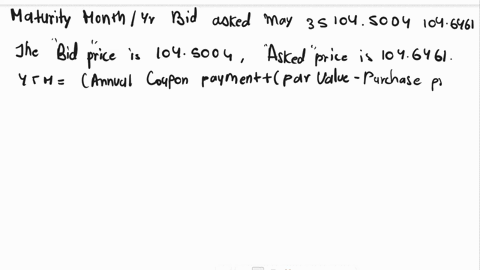 Maturity Month / Yr Bid asked May 35 104.5004 104.6461
The "Bid" price is 104.5004, "Asked" price is 104.6461.
YTM = (Annual Coupon payment + (par Value - Purchase p